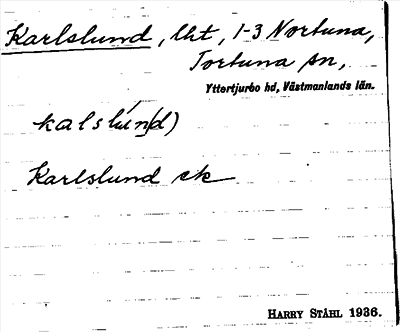 Karlslund, lht, 1-3 Nortuna,
Tortuna sn,
Yttertjurbo hd, Västmanlands län.
kalslún(d)
Karlslund ek
HARRY STÅHL 1936.